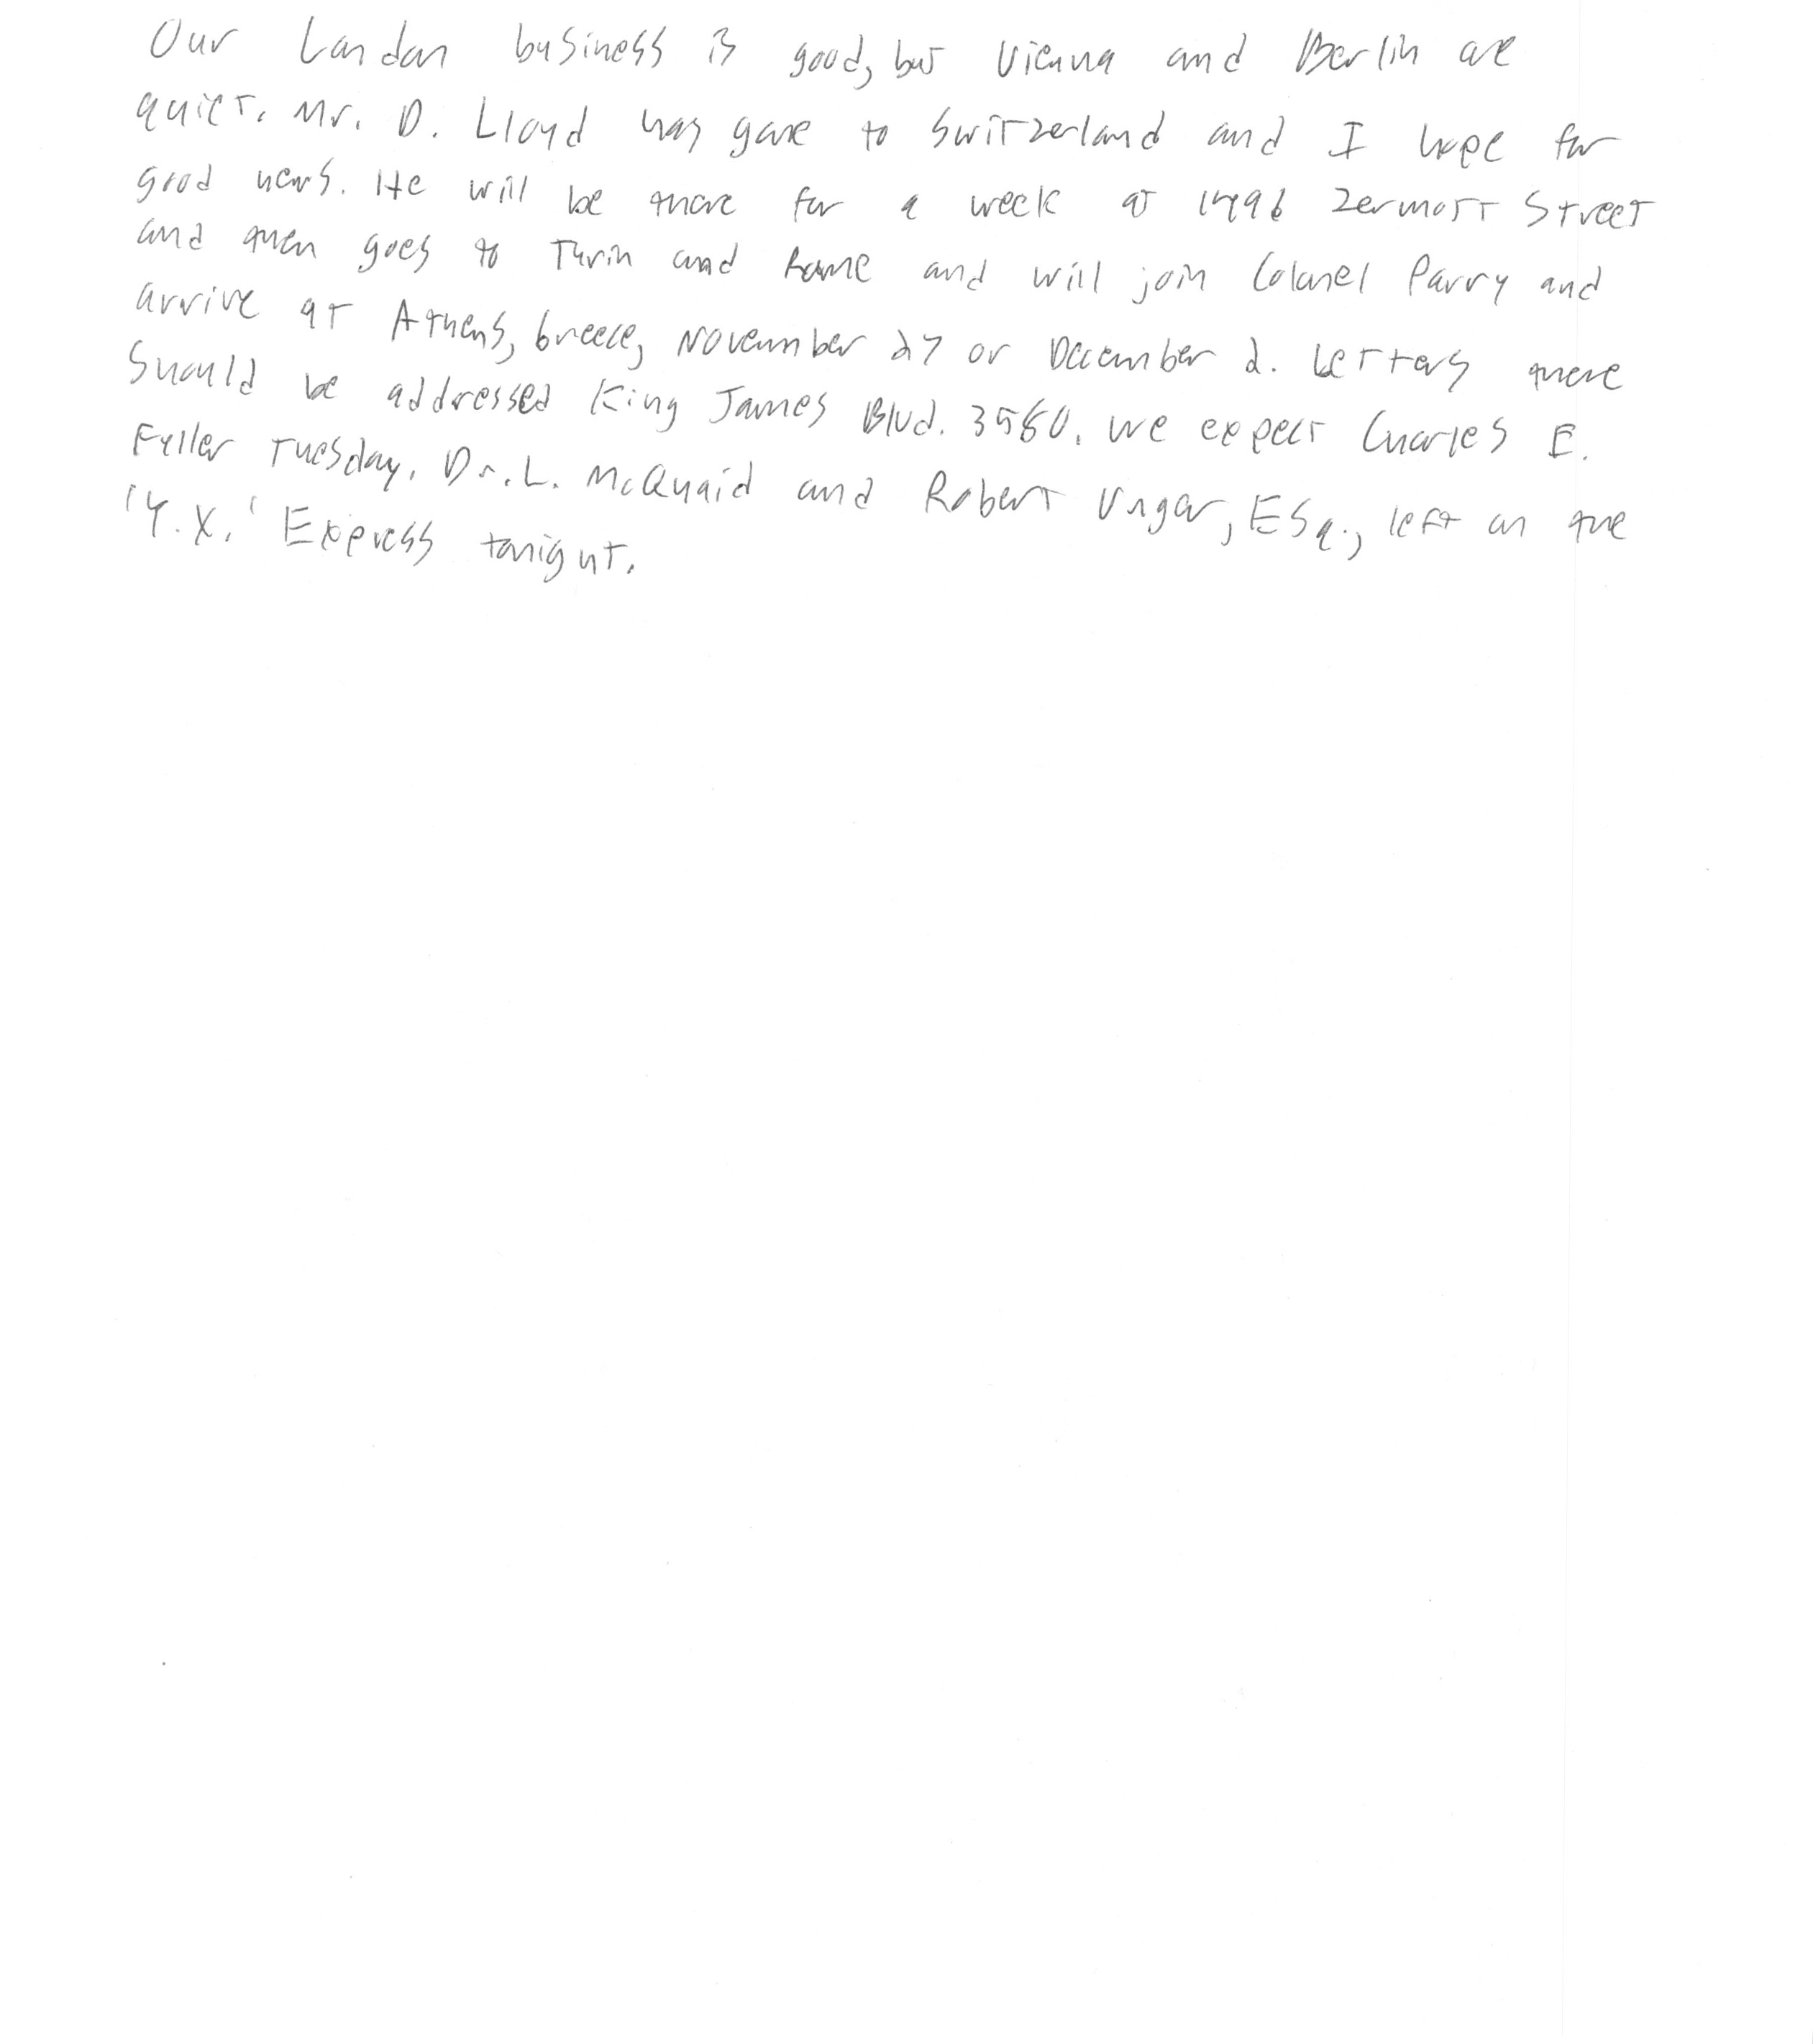 Our London business is good, but Vienna and Berlin are
quiet. Mr. D. Lloyd has gone to Switzerland and I hope for
good news. He will be there for a week at 1496 Zermott Street
and then goes to Turin and Rome and will join Colonel Parry and
arrive at Athens, Greece, November 27 or December 2. Letters there
should be addressed King James Blvd. 3580. We expect Charles E.
Fuller Tuesday. Dr. L. McQuaid and Robert Ungar, Esq., left on the
'Y.X.' Express tonight.